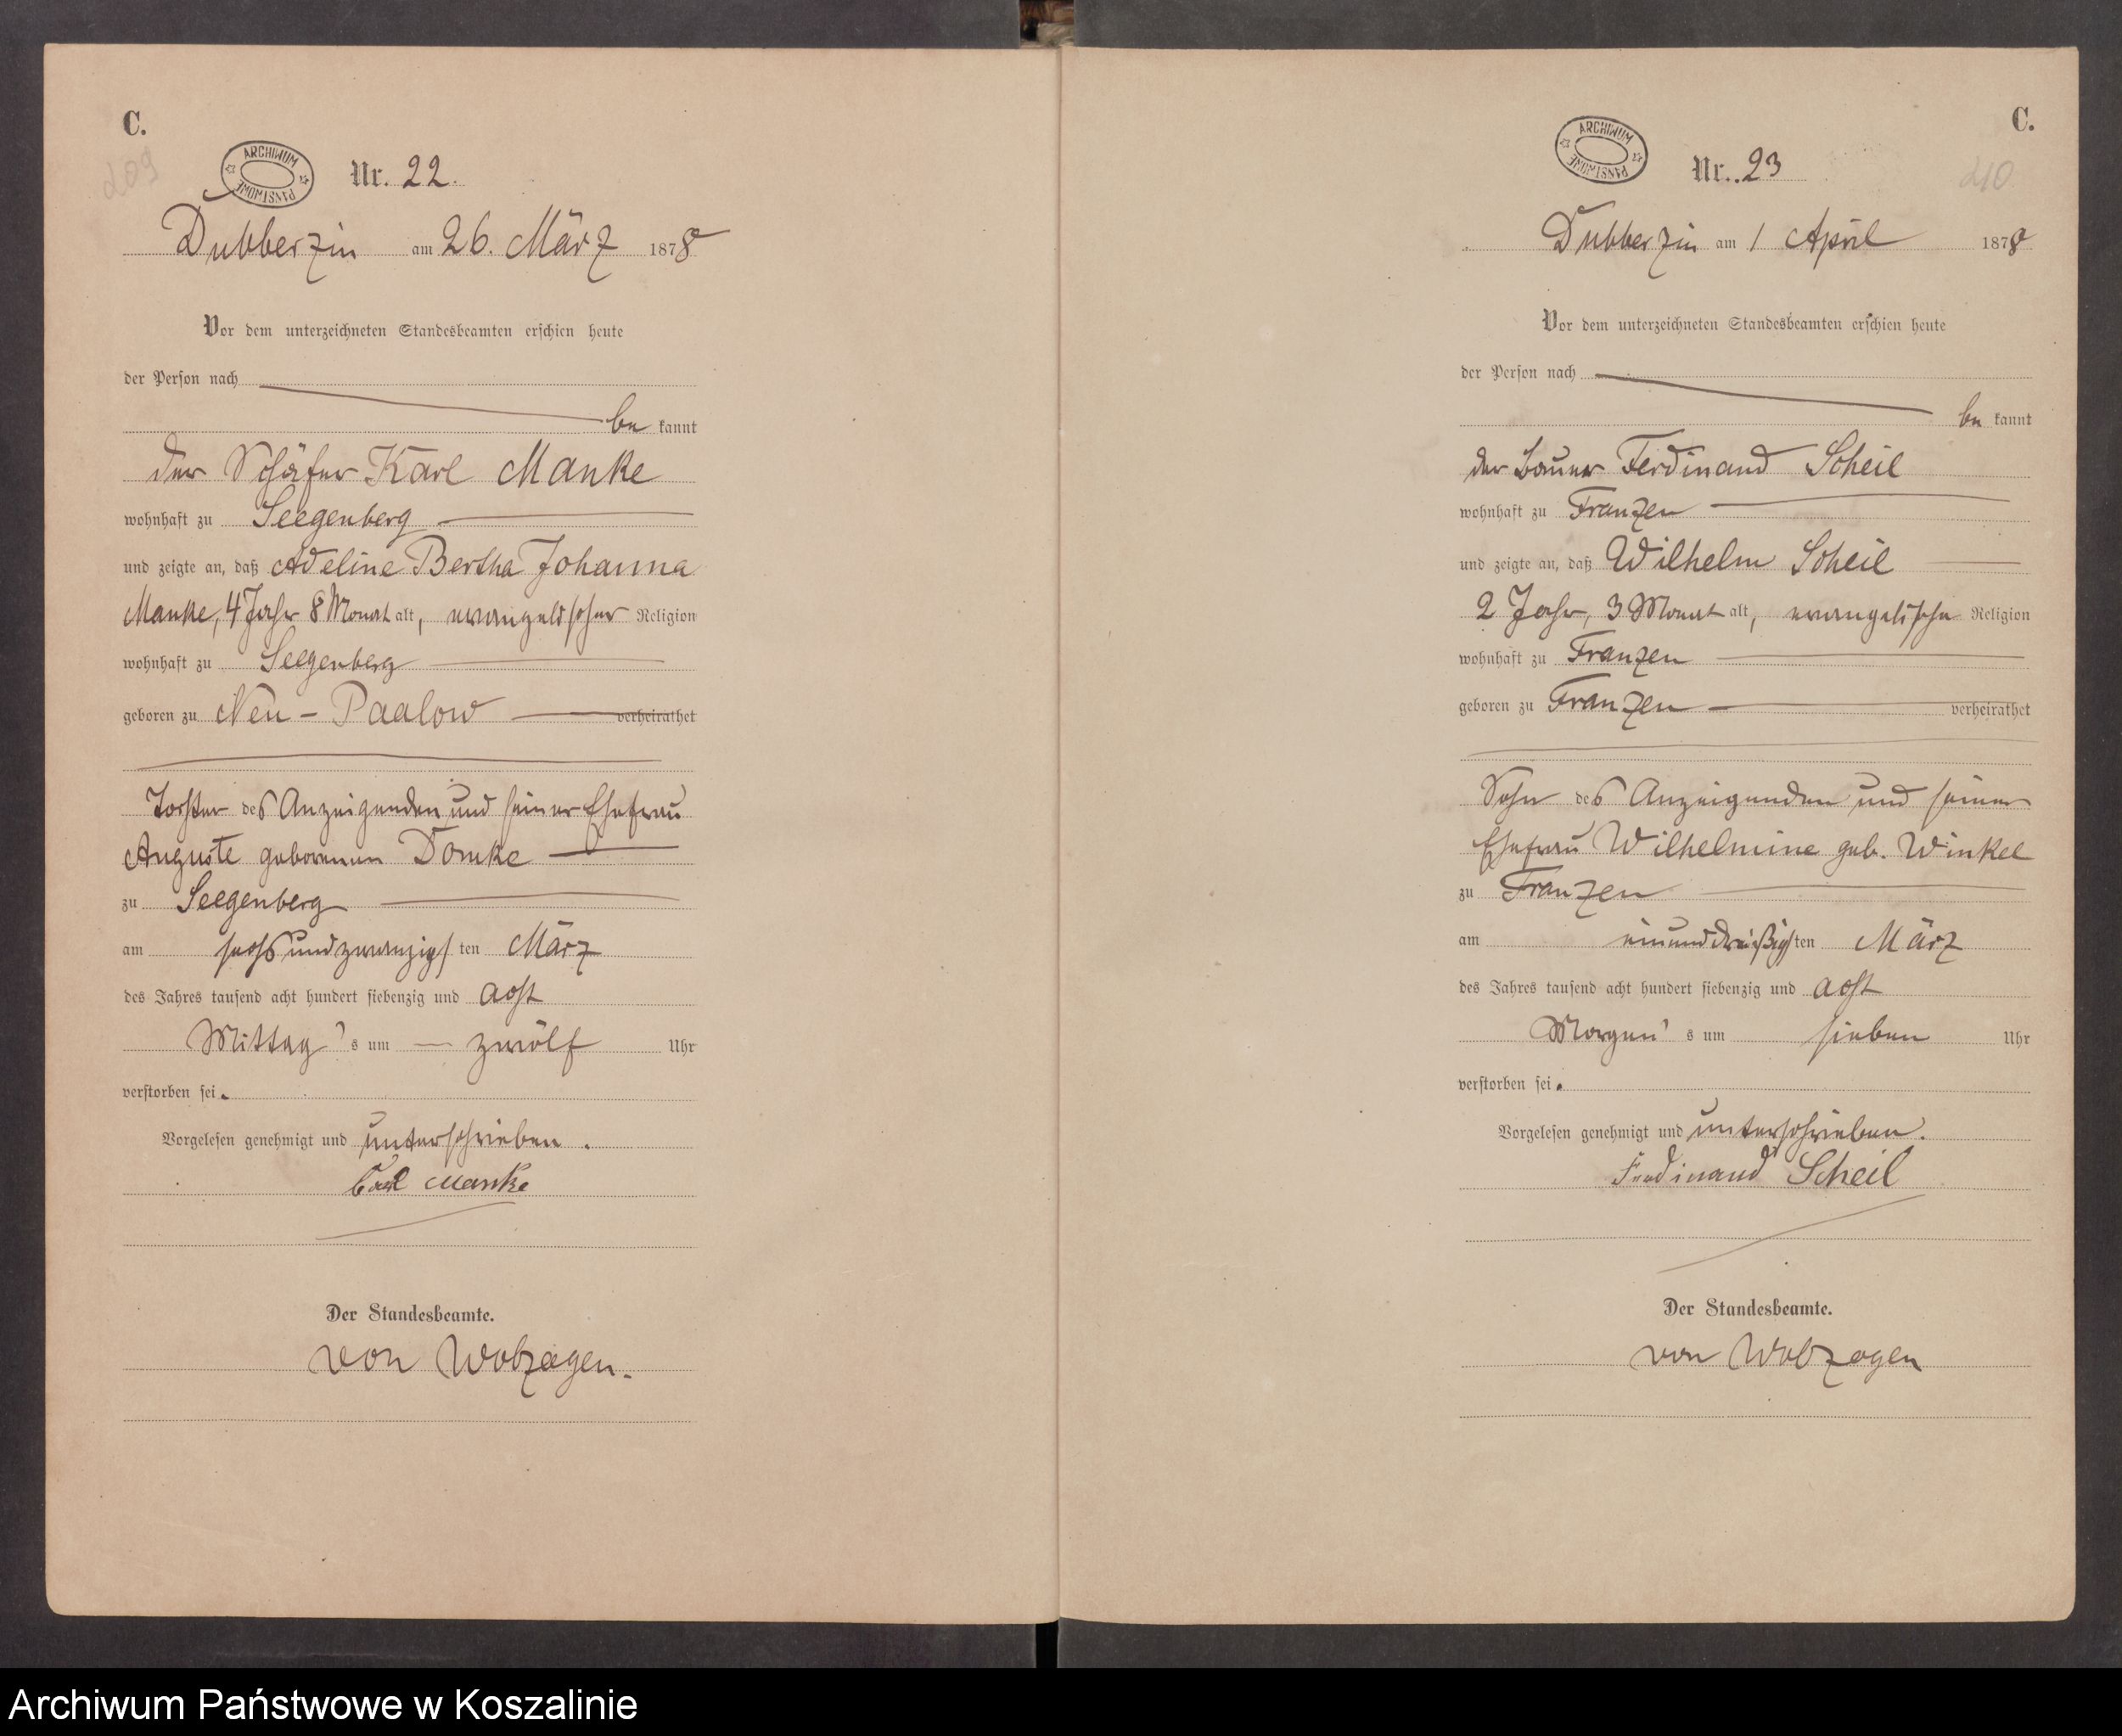 C.
209
ARCHIWUM
PAŃSTWOWE
Nr. 22.
Dubberzin am 26. März 1878
Vor dem unterzeichneten Standesbeamten erschien heute
der Person nach
be kannt
der Schäfer Karl Manke
wohnhaft zu Seegenberg
und zeigte an, daß Adeline Bertha Johanna
Manke, 4 Jahr 8 Monat alt, evangelischer Religion
wohnhaft zu Seegenberg
geboren zu Neu-Paalow verheirathet
Tochter des Anzeigenden und seiner Ehefrau
Auguste geborenen Domke
zu Seegenberg
am sechsundzwanzigsten März
des Jahres tausend acht hundert siebenzig und acht
Mittag's um zwölf Uhr
verstorben sei.
Vorgelesen genehmigt und unterschrieben.
Carl Manke
Der Standesbeamte.
von Wolzogen.
C.
210
ARCHIWUM
PAŃSTWOWE
Nr. 23
Dubberzin am 1 April 1878
Vor dem unterzeichneten Standesbeamten erschien heute
der Person nach
be kannt
der Bauer Ferdinand Scheil
wohnhaft zu Franzen
und zeigte an, daß Wilhelm Scheil
2 Jahr, 3 Monat alt, evangelische Religion
wohnhaft zu Franzen
geboren zu Franzen verheirathet
Sohn des Anzeigenden und seiner
Ehefrau Wilhelmine geb. Winkel
zu Franzen
am einunddreißigsten März
des Jahres tausend acht hundert siebenzig und acht
Morgen's um sieben Uhr
verstorben sei.
Vorgelesen genehmigt und unterschrieben.
Ferdinand Scheil
Der Standesbeamte.
von Wolzogen
Archiwum Państwowe w Koszalinie